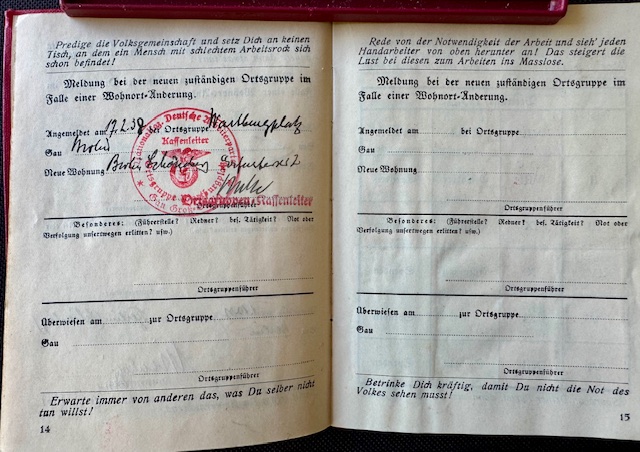 Predige die Volksgemeinschaft und setz Dich an keinen
Tisch, an dem ein Mensch mit schlechtem Arbeitsrock sich
schon befindet!
Meldung bei der neuen zuständigen Ortsgruppe im
Falle einer Wohnort-Änderung.
Angemeldet am 17.2.38 bei Ortsgruppe Wartburgplatz
Gau Berlin
Neue Wohnung Berlin Schöneberg
Kassenleiter
Ortsgruppen-Kassenleiter
Besonderes: (Führerstelle? Redner? bes. Tätigkeit? Not oder
Verfolgung unsertwegen erlitten? usw.)
Ortsgruppenführer
Überwiesen am zur Ortsgruppe
Gau
Ortsgruppenführer
Erwarte immer von anderen das, was Du selber nicht
tun willst!
14
Rede von der Notwendigkeit der Arbeit und sieh' jeden
Handarbeiter von oben herunter an! Das steigert die
Lust bei diesen zum Arbeiten ins Masslose.
Meldung bei der neuen zuständigen Ortsgruppe im
Falle einer Wohnort-Änderung.
Angemeldet am bei Ortsgruppe
Gau
Neue Wohnung
Ortsgruppenführer
Besonderes: (Führerstelle? Redner? bes. Tätigkeit? Not oder
Verfolgung unsertwegen erlitten? usw.)
Ortsgruppenführer
Überwiesen am zur Ortsgruppe
Gau
Ortsgruppenführer
Betrinke Dich kräftig, damit Du nicht die Not des
Volkes sehen musst!
15